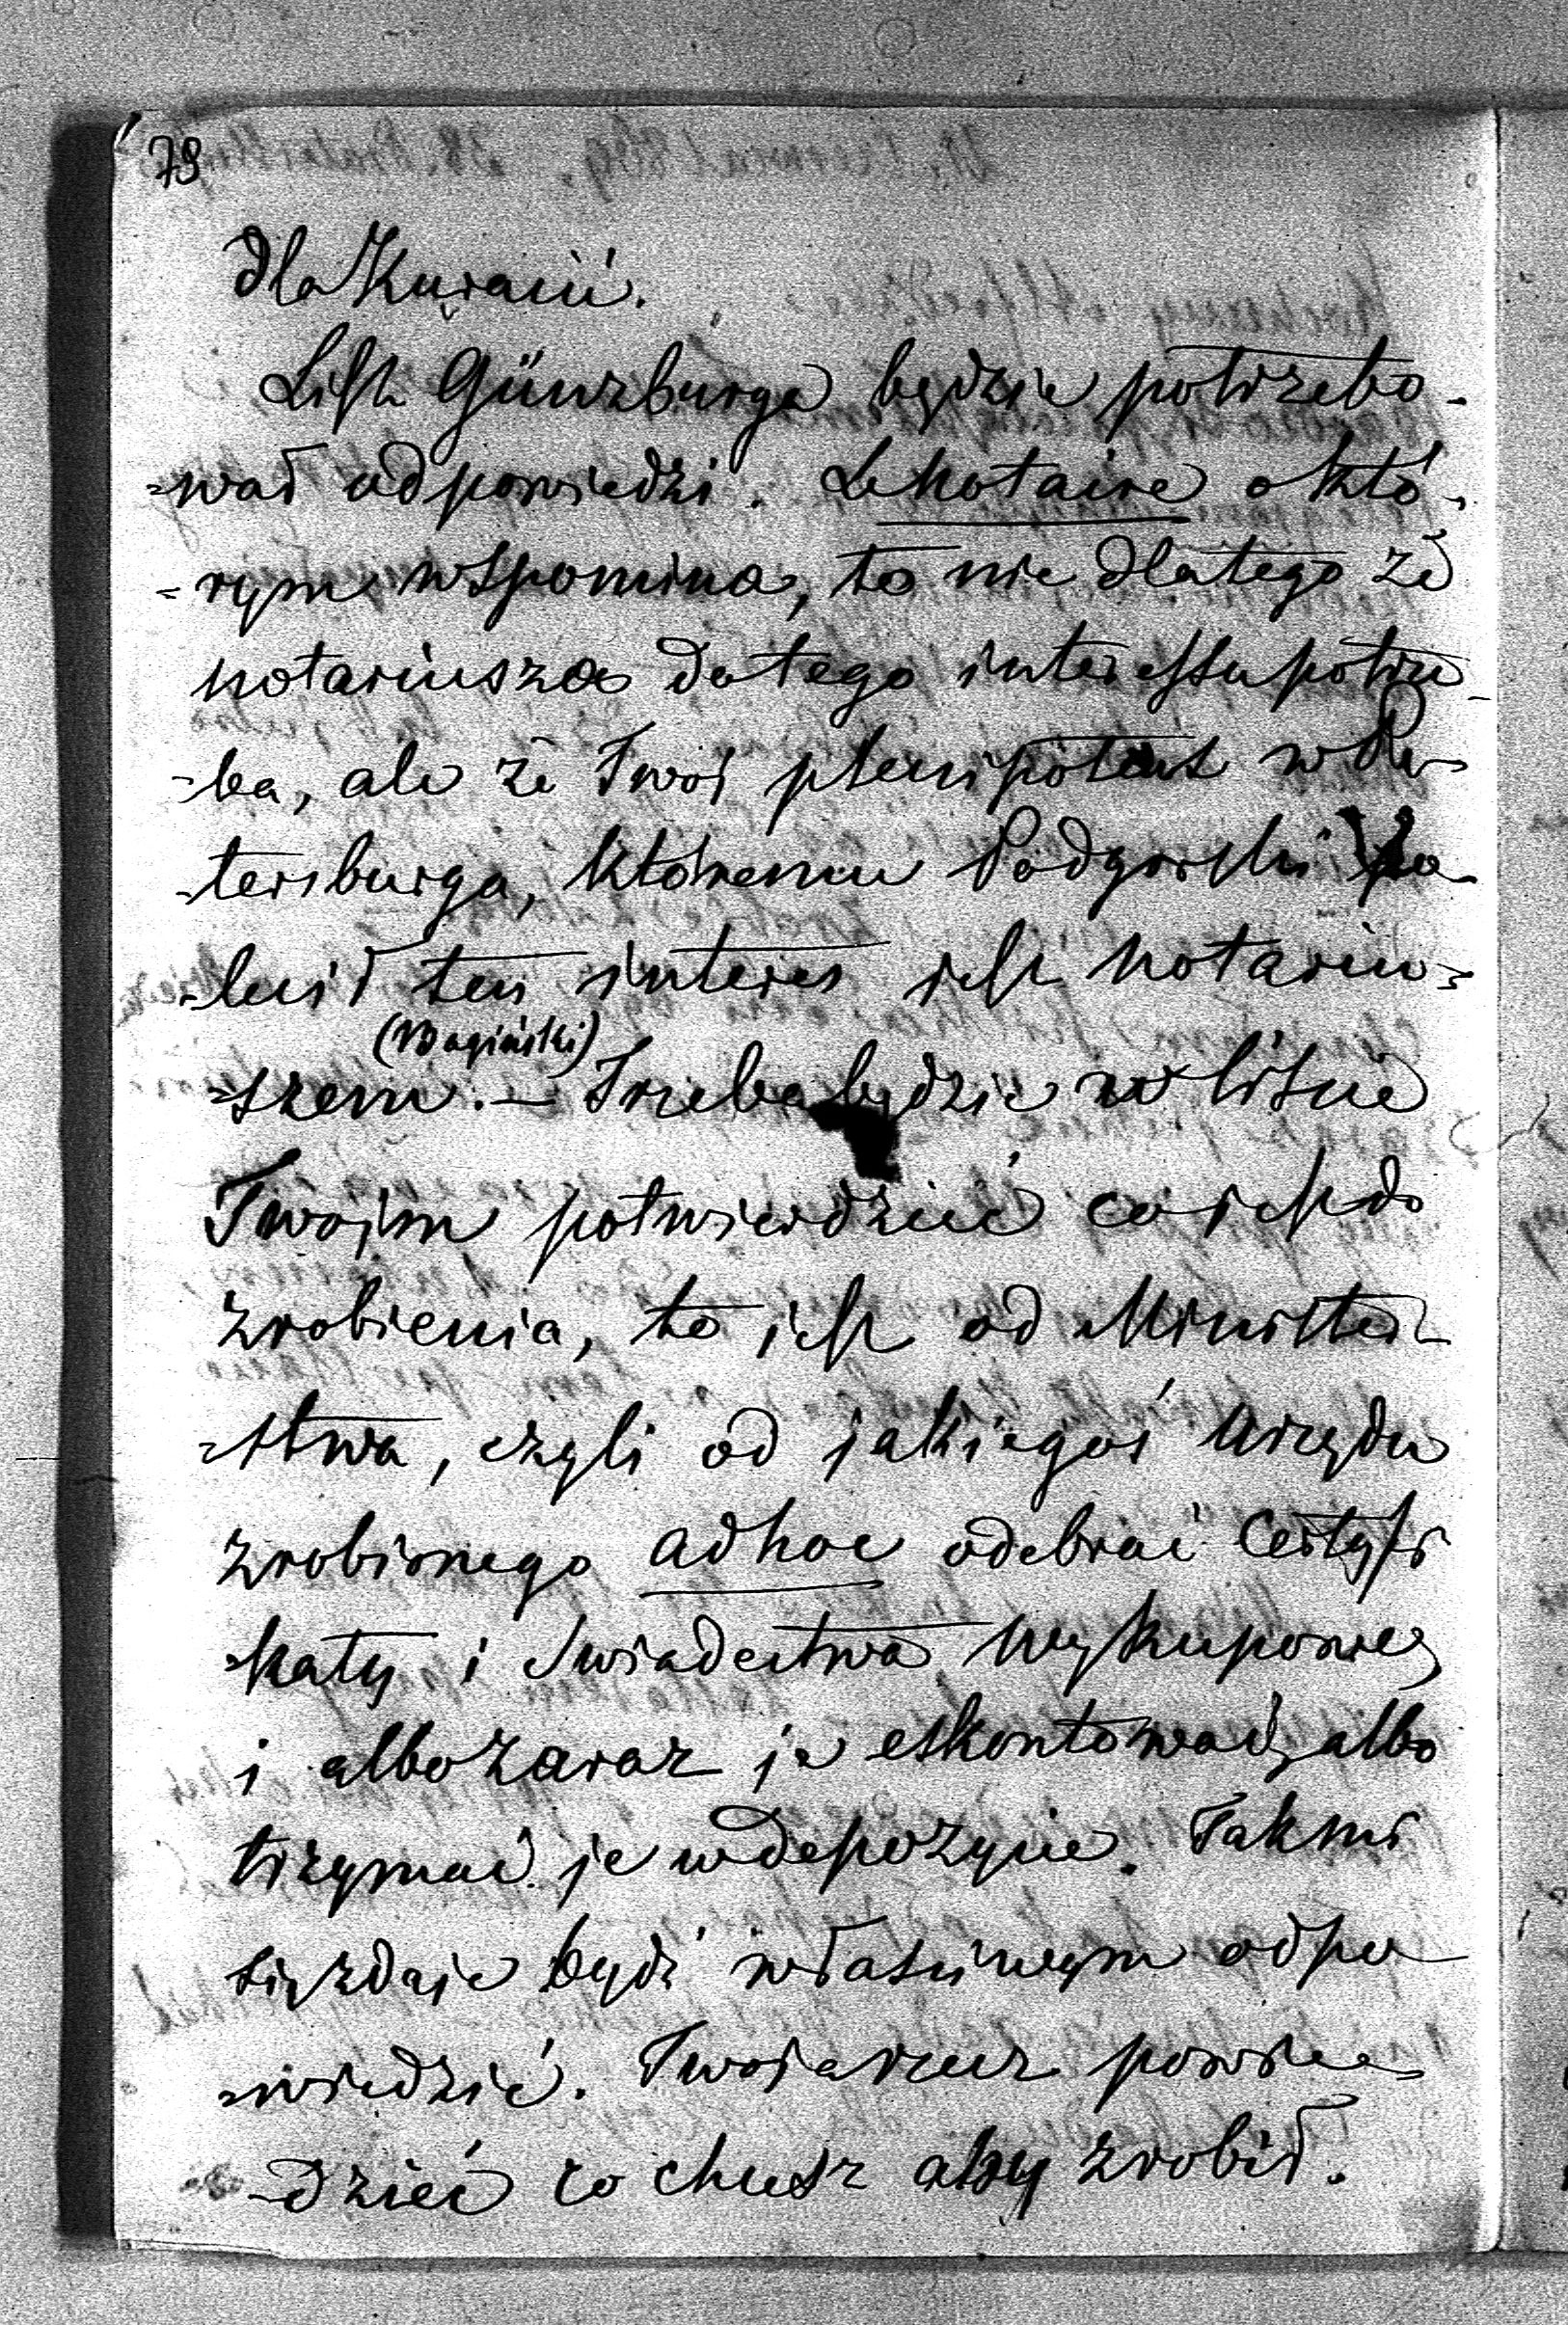 79
dla Kuracii.
List Günzburga będzie potrzebo-
-wał odpowiedzi. Le Notaire o któ-
-rym wspomina, to nie dlatego że
notariusza do tego interessu potrze-
-ba, ale że Twoj plenipotent w Pe-
-tersburga, któremu Podgorski po-
-lecił ten interes jest notariu-
(Bagiński)
-szem. – Trzeba będzie w liście
Twojm potwierdzić co jest do
zrobienia, to jest od Minister-
-stwa, czyli od jakiegoś urzędu
zrobionego ad hoc odebrać certyfi
-katy i swiadectwa wykupowe,
i albo zaraz je eskontować, albo
trzymać je w depozycie. Tak mi
się zdaje bydź właściwym odpo
-wiedzić. Twoja rzecz powie-
-dzieć co chcesz aby zrobił.